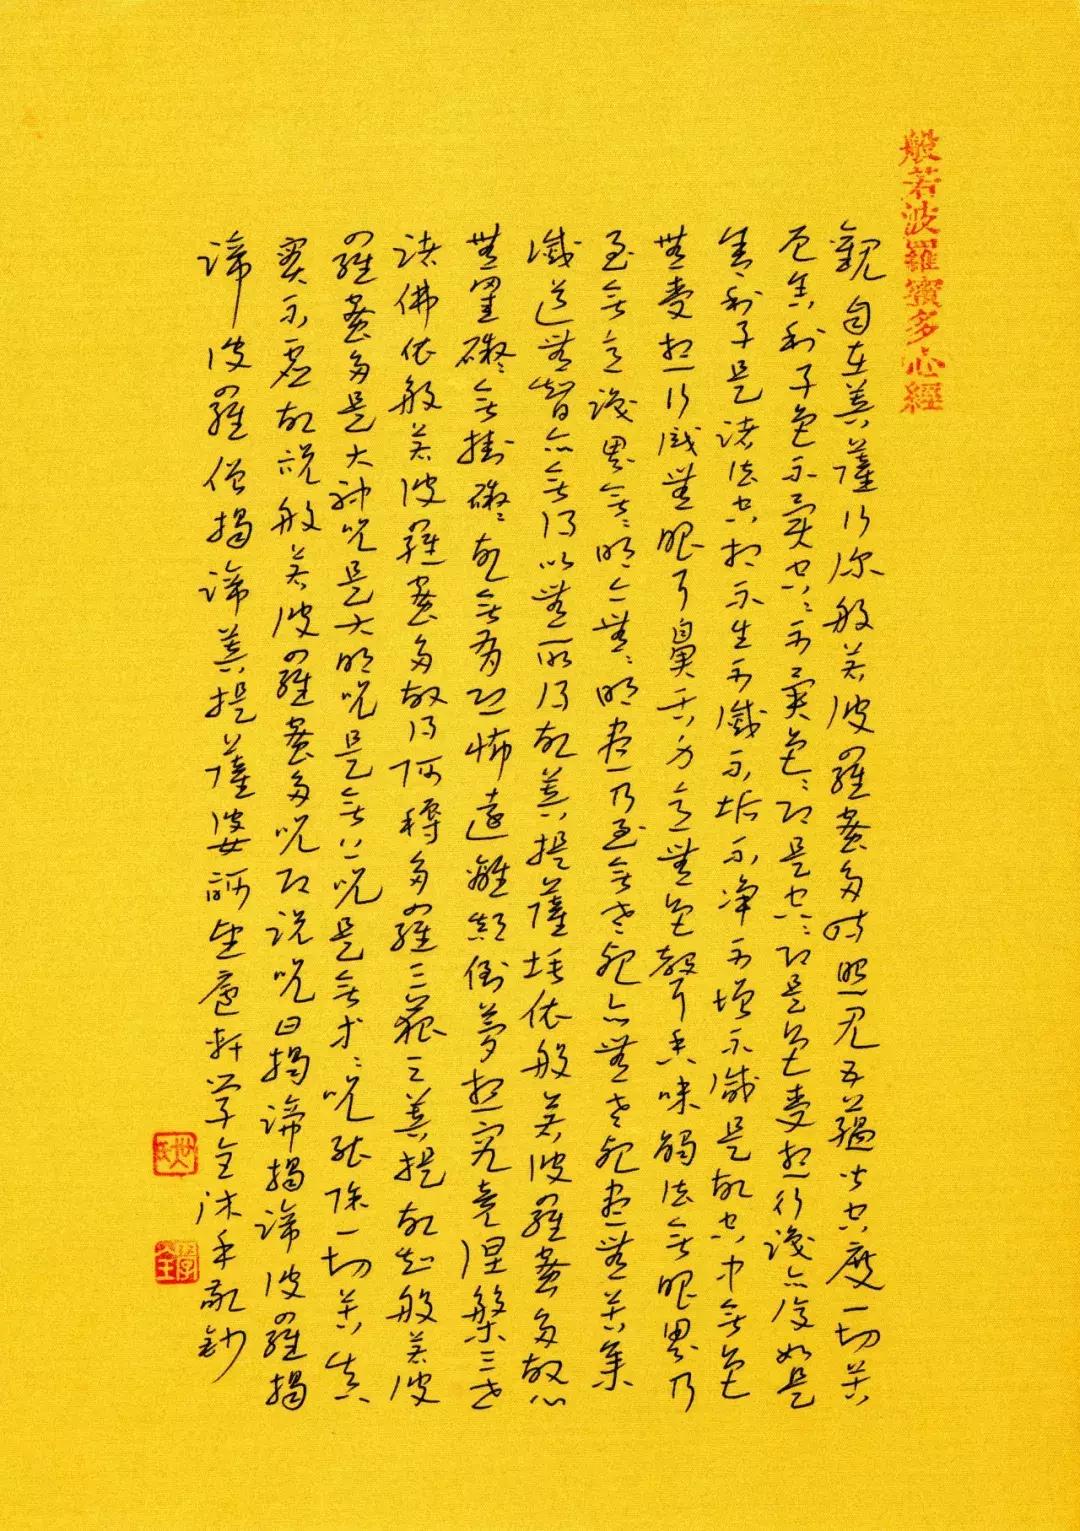 般若波羅蜜多心經
觀自在菩薩行深般若波羅蜜多時照見五蘊皆空度一切苦
厄舍利子色不異空〻不異色〻即是空〻即是色受想行識亦復如是
舍利子是諸法空相不生不滅不垢不淨不增不減是故空中無色
無受想行識無眼耳鼻舌身意無色聲香味觸法無眼界乃
至無意識界無〻明亦無〻明盡乃至無老死亦無老死盡無苦集
滅道無智亦無得以無所得故菩提薩埵依般若波羅蜜多故心
無罣礙無掛礙故無有恐怖遠離顛倒夢想究竟涅槃三世
諸佛依般若波羅蜜多故得阿耨多羅三藐三菩提故知般若波
羅蜜多是大神咒是大明咒是無上咒是無等〻咒能除一切苦真
實不虛故說般若波羅蜜多咒即說咒曰揭諦揭諦波羅揭
諦波羅僧揭諦菩提薩婆訶軒學全沐手敬鈔
學全